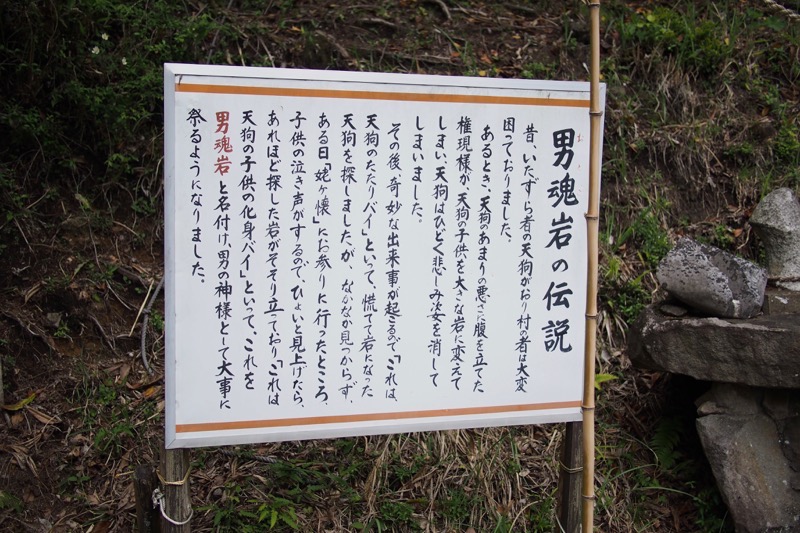 男魂岩の伝説
昔、いたずら者の天狗がおり村の者は大変
困っておりました。
あるとき、天狗のあまりの悪さに腹を立てた
権現様が、天狗の子供を大きな岩に変えて
しまい、天狗はひどく悲しみ姿を消して
しまいました。
その後、奇妙な出来事が起こるので「これは、
天狗のたたりバイ」といって、慌てて岩になった
天狗を探しましたが、なかなか見つからず、
ある日「姥ヶ懐」にお参りに行ったところ、
子供の泣き声がするので、ひょいと見上げたら、
あれほど探した岩がそそり立っており「これは
天狗の子供の化身バイ」といって、これを
男魂岩と名付け、男の神様として大事に
祭るようになりました。